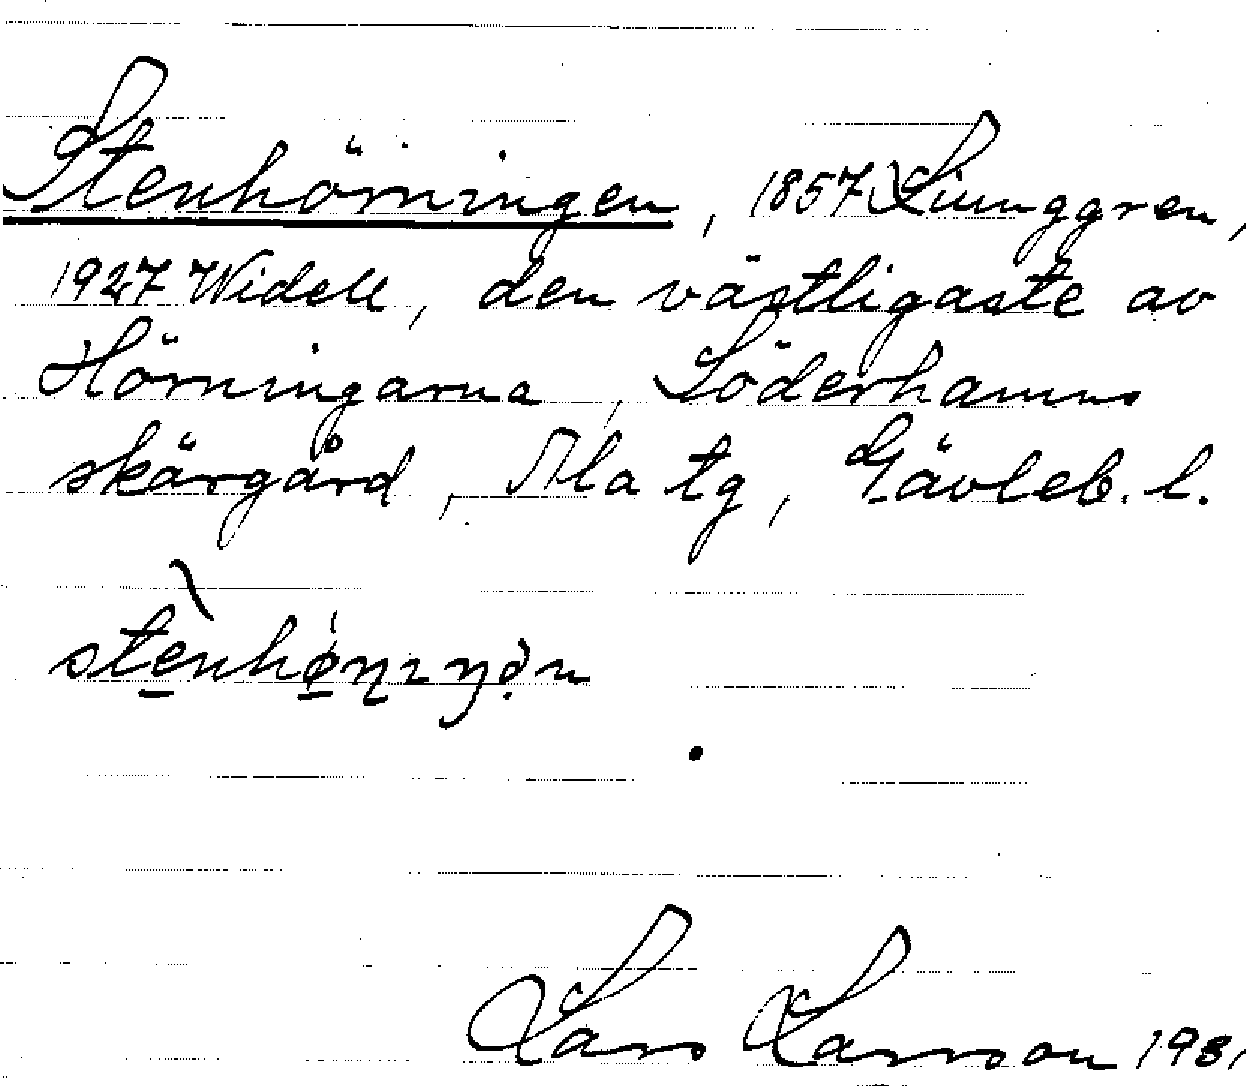 Stenhörningen, 1857 Liunggren,
1927 Widell, den västligaste av
Hörningarna, Söderhamns
skärgård, Ala tg, Gävleb. l.
Lars Larsson